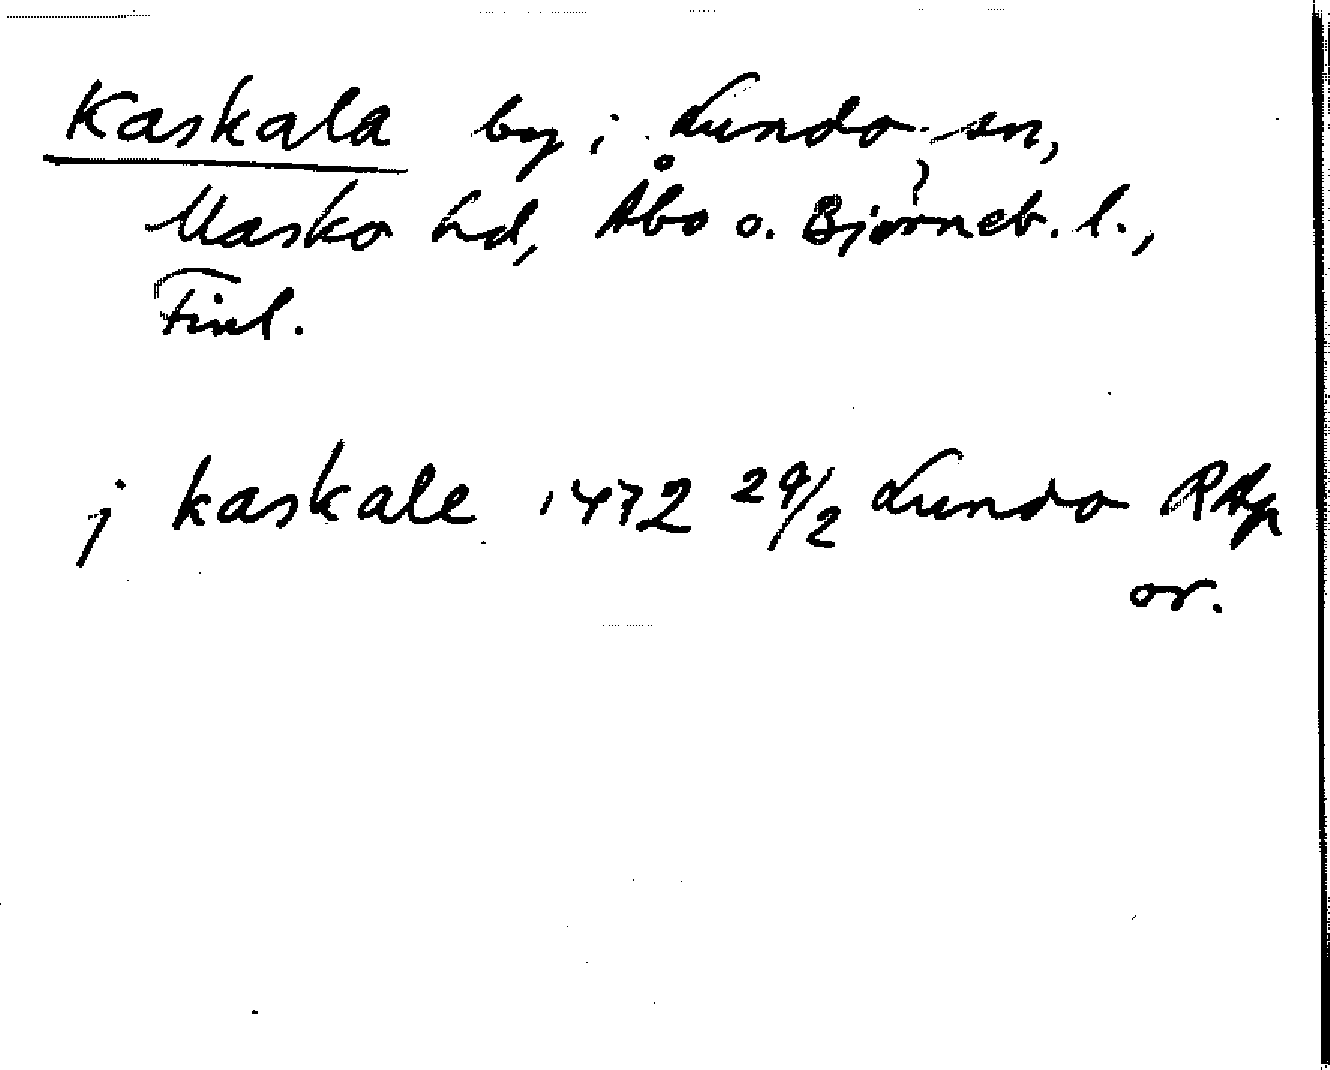 Kaskala by i Lundo sn,
Masko hd, Åbo o. Björneb. l.,
Finl.
j kaskale 1472 29/2 Lundo RAp
or.